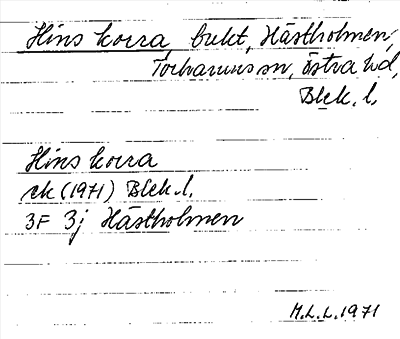 Hins korra, bukt, Hästholmen,
Torhamns sn, Östra hd,
Blek. l.
Hins korra
ek (1971) Blek. l.
3F 3j Hästholmen
M.L.L. 1971